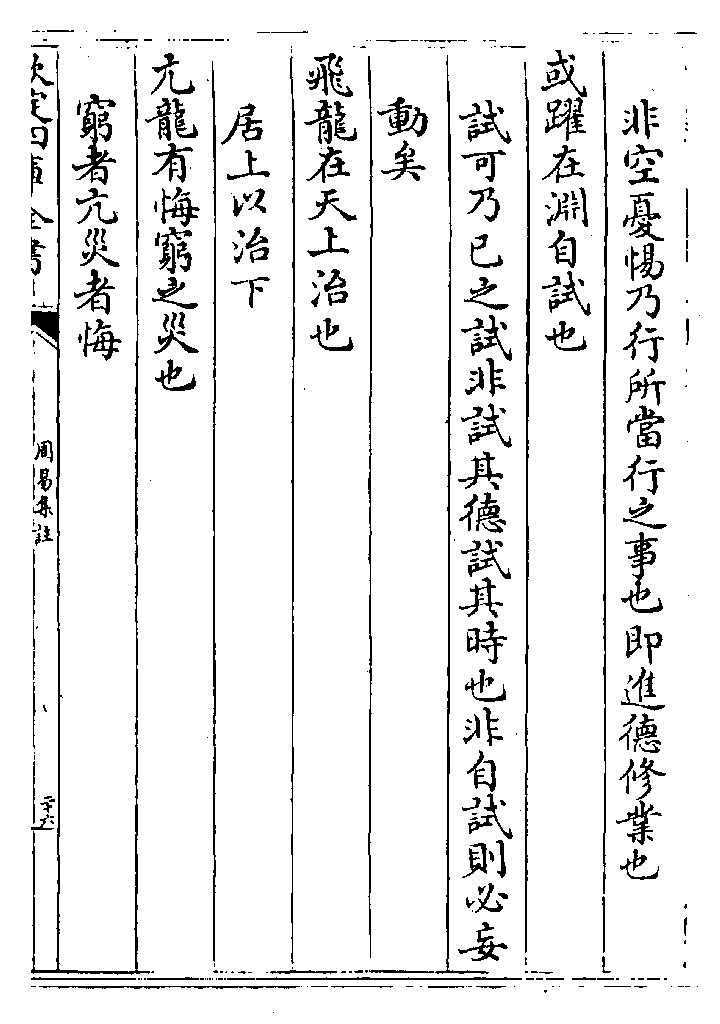 非空憂惕乃行所當行之事也即進德修業也
或躍在淵自試也
試可乃已之試非試其德試其時也非自試則必妄
動矣
飛龍在天上治也
居上以治下
亢龍有悔窮之災也
窮者亢災者悔
欽定四庫全書
周易集註
二十六